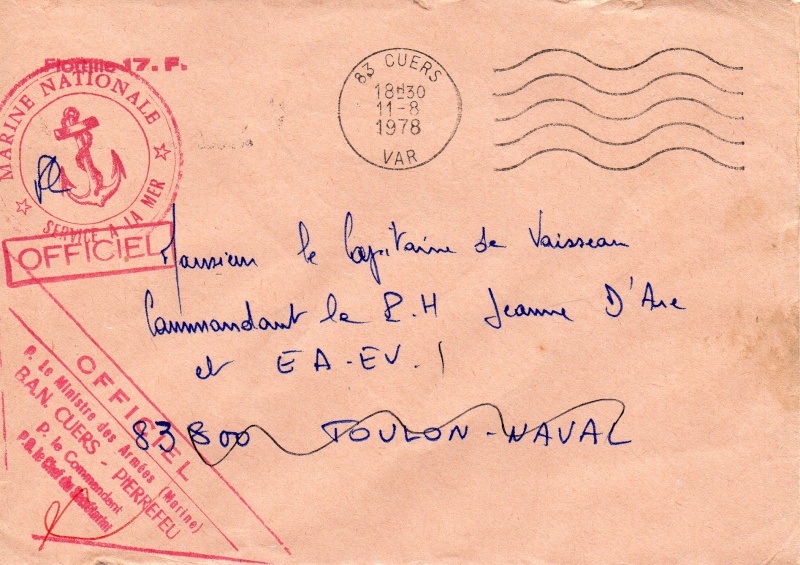 Flottille 17. F.
MARINE NATIONALE
SERVICE A LA MER
OFFICIEL
83 CUERS
18H30
11-8
1978
VAR
Monsieur le Capitaine de Vaisseau
Commandant le P.H Jeanne D'Arc
et EA-EV.
83800 TOULON-NAVAL
OFFICIEL
P. Le Ministre des Armées (Marine)
B.A.N. CUERS - PIERREFEU
P. le Commandant
P.O. le Chef du Secrétariat